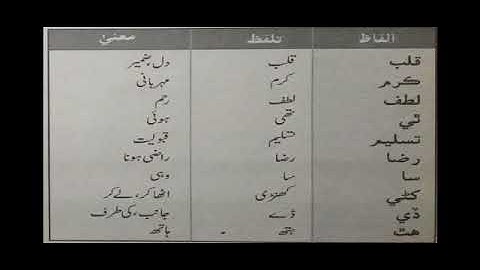 الفاظ تلفظ معنیٰ
قلب قلب دل، ضمیر
ڪرم کرم مہربانی
لطف لطف رحم
ٿي تھی ہوئی
تسليم تسلیم قبولیت
رضا رضا راضی ہونا
سا سا وہی
کڻي کھنڑی اٹھا کر، لے کر
ڏي ڈے جانب، کی طرف
هٿ ہتھ ہاتھ